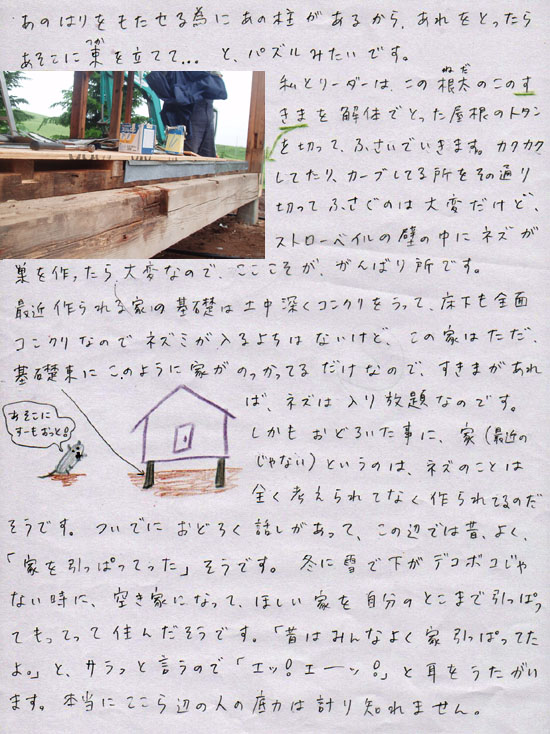 あのはりをもたせる為にあの柱があるから、あれをとったら
あそこに束を立てて… と、パズルみたいです。
つか
私とリーダーは、この根太のこのす
ねだ
きまを解体でとった屋根のトタン
を切って、ふさいでいきます。カクカク
してたり、カーブしてる所をその通り
切ってふさぐのは大変だけど、
ストローベイルの壁の中にネズが
巣を作ったら大変なので、ここそが、がんばり所です。
最近作られる家の基礎は土中深くコンクリをうって、床下も全面
コンクリなのでネズミが入るよちはないけど、この家はただ、
基礎束にこのように家がのっかってるだけなので、すきまがあれ
ば、ネズは入り放題なのです。
しかもおどろいた事に、家(最近の
じゃない)というのは、ネズのことは
全く考えられてなく作られてるのだ
あそこに
すーもおっと!
そうです。ついでにおどろく話しがあって、この辺では昔、よく、
「家を引っぱってった」そうです。冬に雪で下がデコボコじゃ
ない時に、空き家になって、ほしい家を自分のとこまで引っぱっ
てもってって住んだそうです。「昔はみんなよく家引っぱってた
よ。」と、サラっと言うので「エッ!エーッ!」と耳をうたがい
ます。本当にここら辺の人の底力は計り知れません。